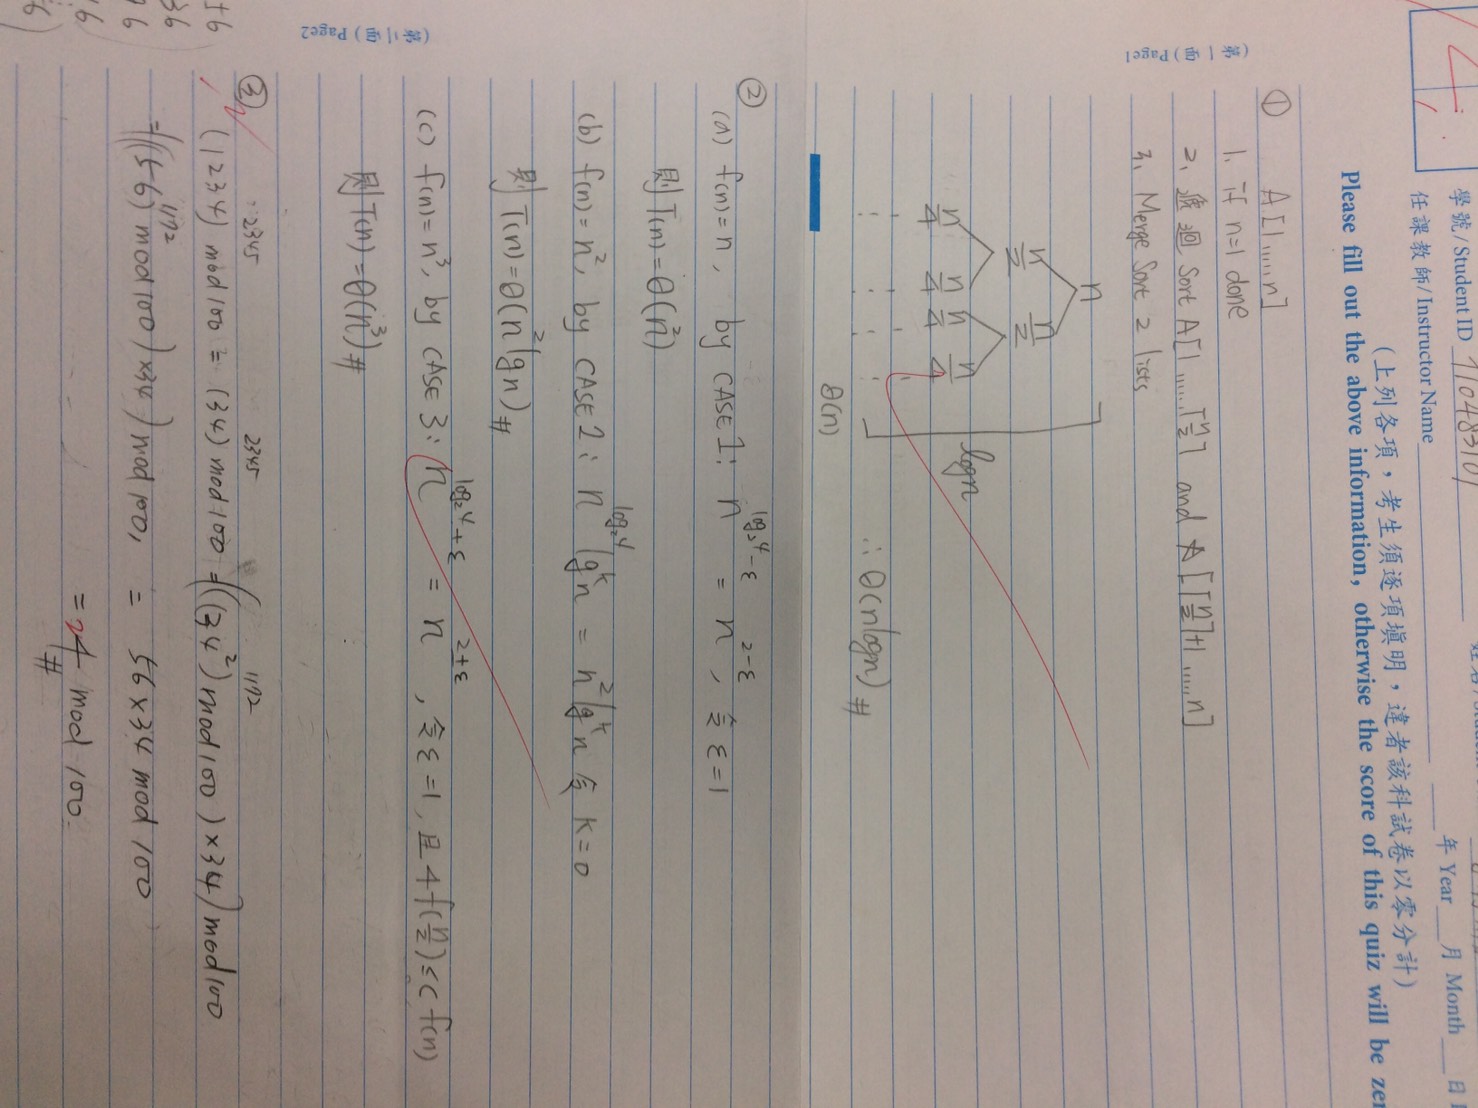 學號/Student ID 710483101
任課教師/Instructor Name
年 Year 月 Month 日
(上列各項,考生須逐項填明,違者該科試卷以零分計)
Please fill out the above information, otherwise the score of this quiz will be zer
(第一面) Page1
① A[1,....,n]
1. if n=1 done
2. 遞迴 Sort A[1,.....⌈n/2⌉] and A[⌈n/2⌉+1,....,n]
3. Merge Sort 2 lists
n
n/2 n/2
n/4 n/4 n/4 n/4
logn
∴ θ(nlogn)#
θ(n)
②
(a) f(n)=n, by CASE 1: n^(log₂4-ε) = n^(2-ε), 令 ε=1
則 T(n)=θ(n²)
(b) f(n)=n², by CASE 2: n^(log₂4) lg^k n = n² lg^k n 令 k=0
則 T(n)=θ(n² lgn)#
(c) f(n)=n³, by CASE 3: n^(log₂4+ε) = n^(2+ε), 令 ε=1, 且 4f(n/2)≤c f(n)
則 T(n)=θ(n³)#
(第二面) Page2
③ (1234)^2345 mod 100 = (34)^2345 mod 100 = (((34²) mod 100)^1172 ×34) mod 100
=(((56)^1172 mod 100)×34) mod 100, = 56×34 mod 100
=24 mod 100
#
56
36
96
16